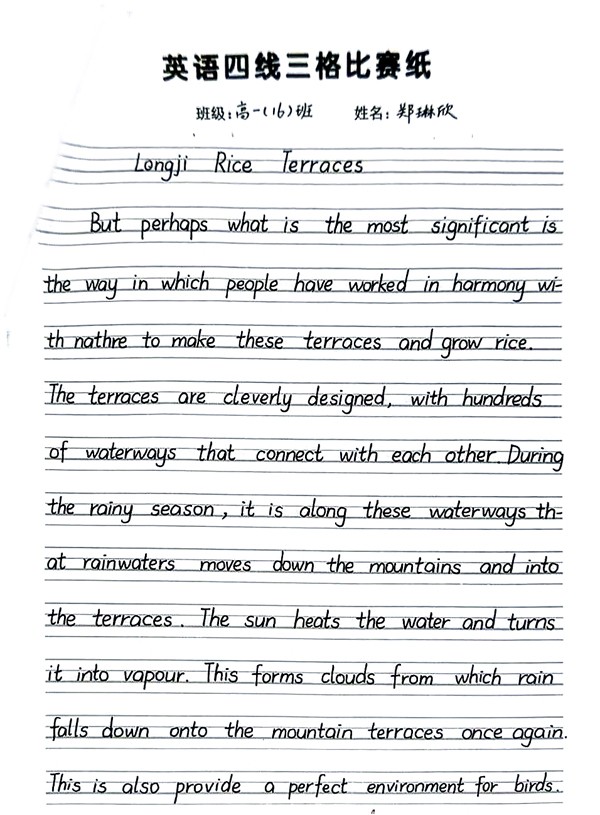 英语四线三格比赛纸
班级:高一(16)班 姓名:郑琳欣
Longji Rice Terraces
But perhaps what is the most significant is
the way in which people have worked in harmony wi-
th nathre to make these terraces and grow rice.
The terraces are cleverly designed, with hundreds
of waterways that connect with each other. During
the rainy season, it is along these waterways th-
at rainwaters moves down the mountains and into
the terraces. The sun heats the water and turns
it into vapour. This forms clouds from which rain
falls down onto the mountain terraces once again.
This is also provide a perfect environment for birds.